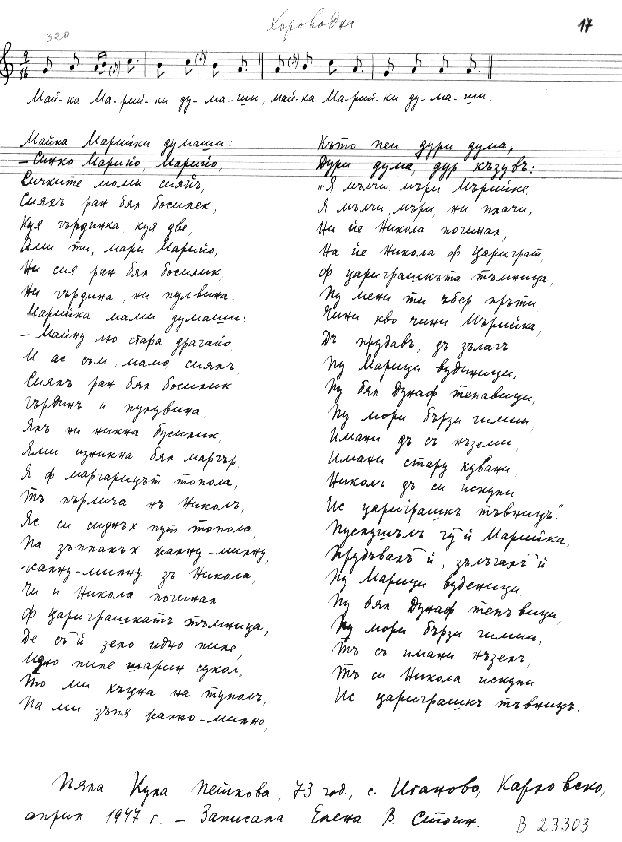 Хороводни
17
320
9
16
Май-ка Ма-рий-ки ду-ма-ши, май-ка Ма-рий-ки ду-ма-ши.
Майка Марийки думаши:
– Синко Марийо, Марийо,
Сичките моми сияйъ,
Сияйъ ран бял босилек,
Куя гърдинка куя две,
Ами ти, мари Марийо,
Ни сия ран бял босилик,
Ни гърдина, ни пулвина.
Марийка мами думаши:
– Майну льо стара драгайо,
И ас съм, мамо сиялъ,
Сиялъ ран бял босилик
Гърдинъ и пулувина,
Ялъ ни никна бусилик,
Ями изникна бял маргър,
Я ф маргаридът топола,
Тъ пърлича нъ Николъ,
Яс си сиднъх път топола,
Па зъплакъх жално-милну,
Жалну-милну зъ Никола,
Чи и Никола погинал
Ф цариградскатъ тъмница,
Де съ й зело идно пиле,
Идно пиле шарин сукол,
То ми къцна на туполъ,
Па ми зъпя жално-милно,
Къто пеи дури дума,
Дури дума, дур къзувъ:
"Я мълчи, мъри Мърийке
Я мълчи, мъри, ни плачи,
Ни йе Никола погинал,
На йе Никола ф Цариград,
Ф цариградскътъ тъмница,
Пу мени ти збор пръти
Чини кво чини Мърийка,
Дъ прудавъ, дъ зълагъ
Пу Марици вудиници,
Пу бял Дунаф тепавици,
Пу мори бързи гимии,
Имани дъ съ нъземи,
Имани стару кувани
Николъ дъ си искупи
Ис цариградскъ тъвницъ".
Пуслушълъ гу й Марийка,
Прудъвалъ й, зълъгалъ й
Пу Марици вуденици
Пу бял Дунаф тепъвици,
Пу мори бързи гимии,
Тъ съ имани нъзелъ,
Тъ си Никола искупи
Ис цариградскъ тъвницъ.
Пяла Кула Пейкова, 73 год., с. Иганово, Карловско,
април 1947 г. – Записала Елена В. Стоин.
В 23303